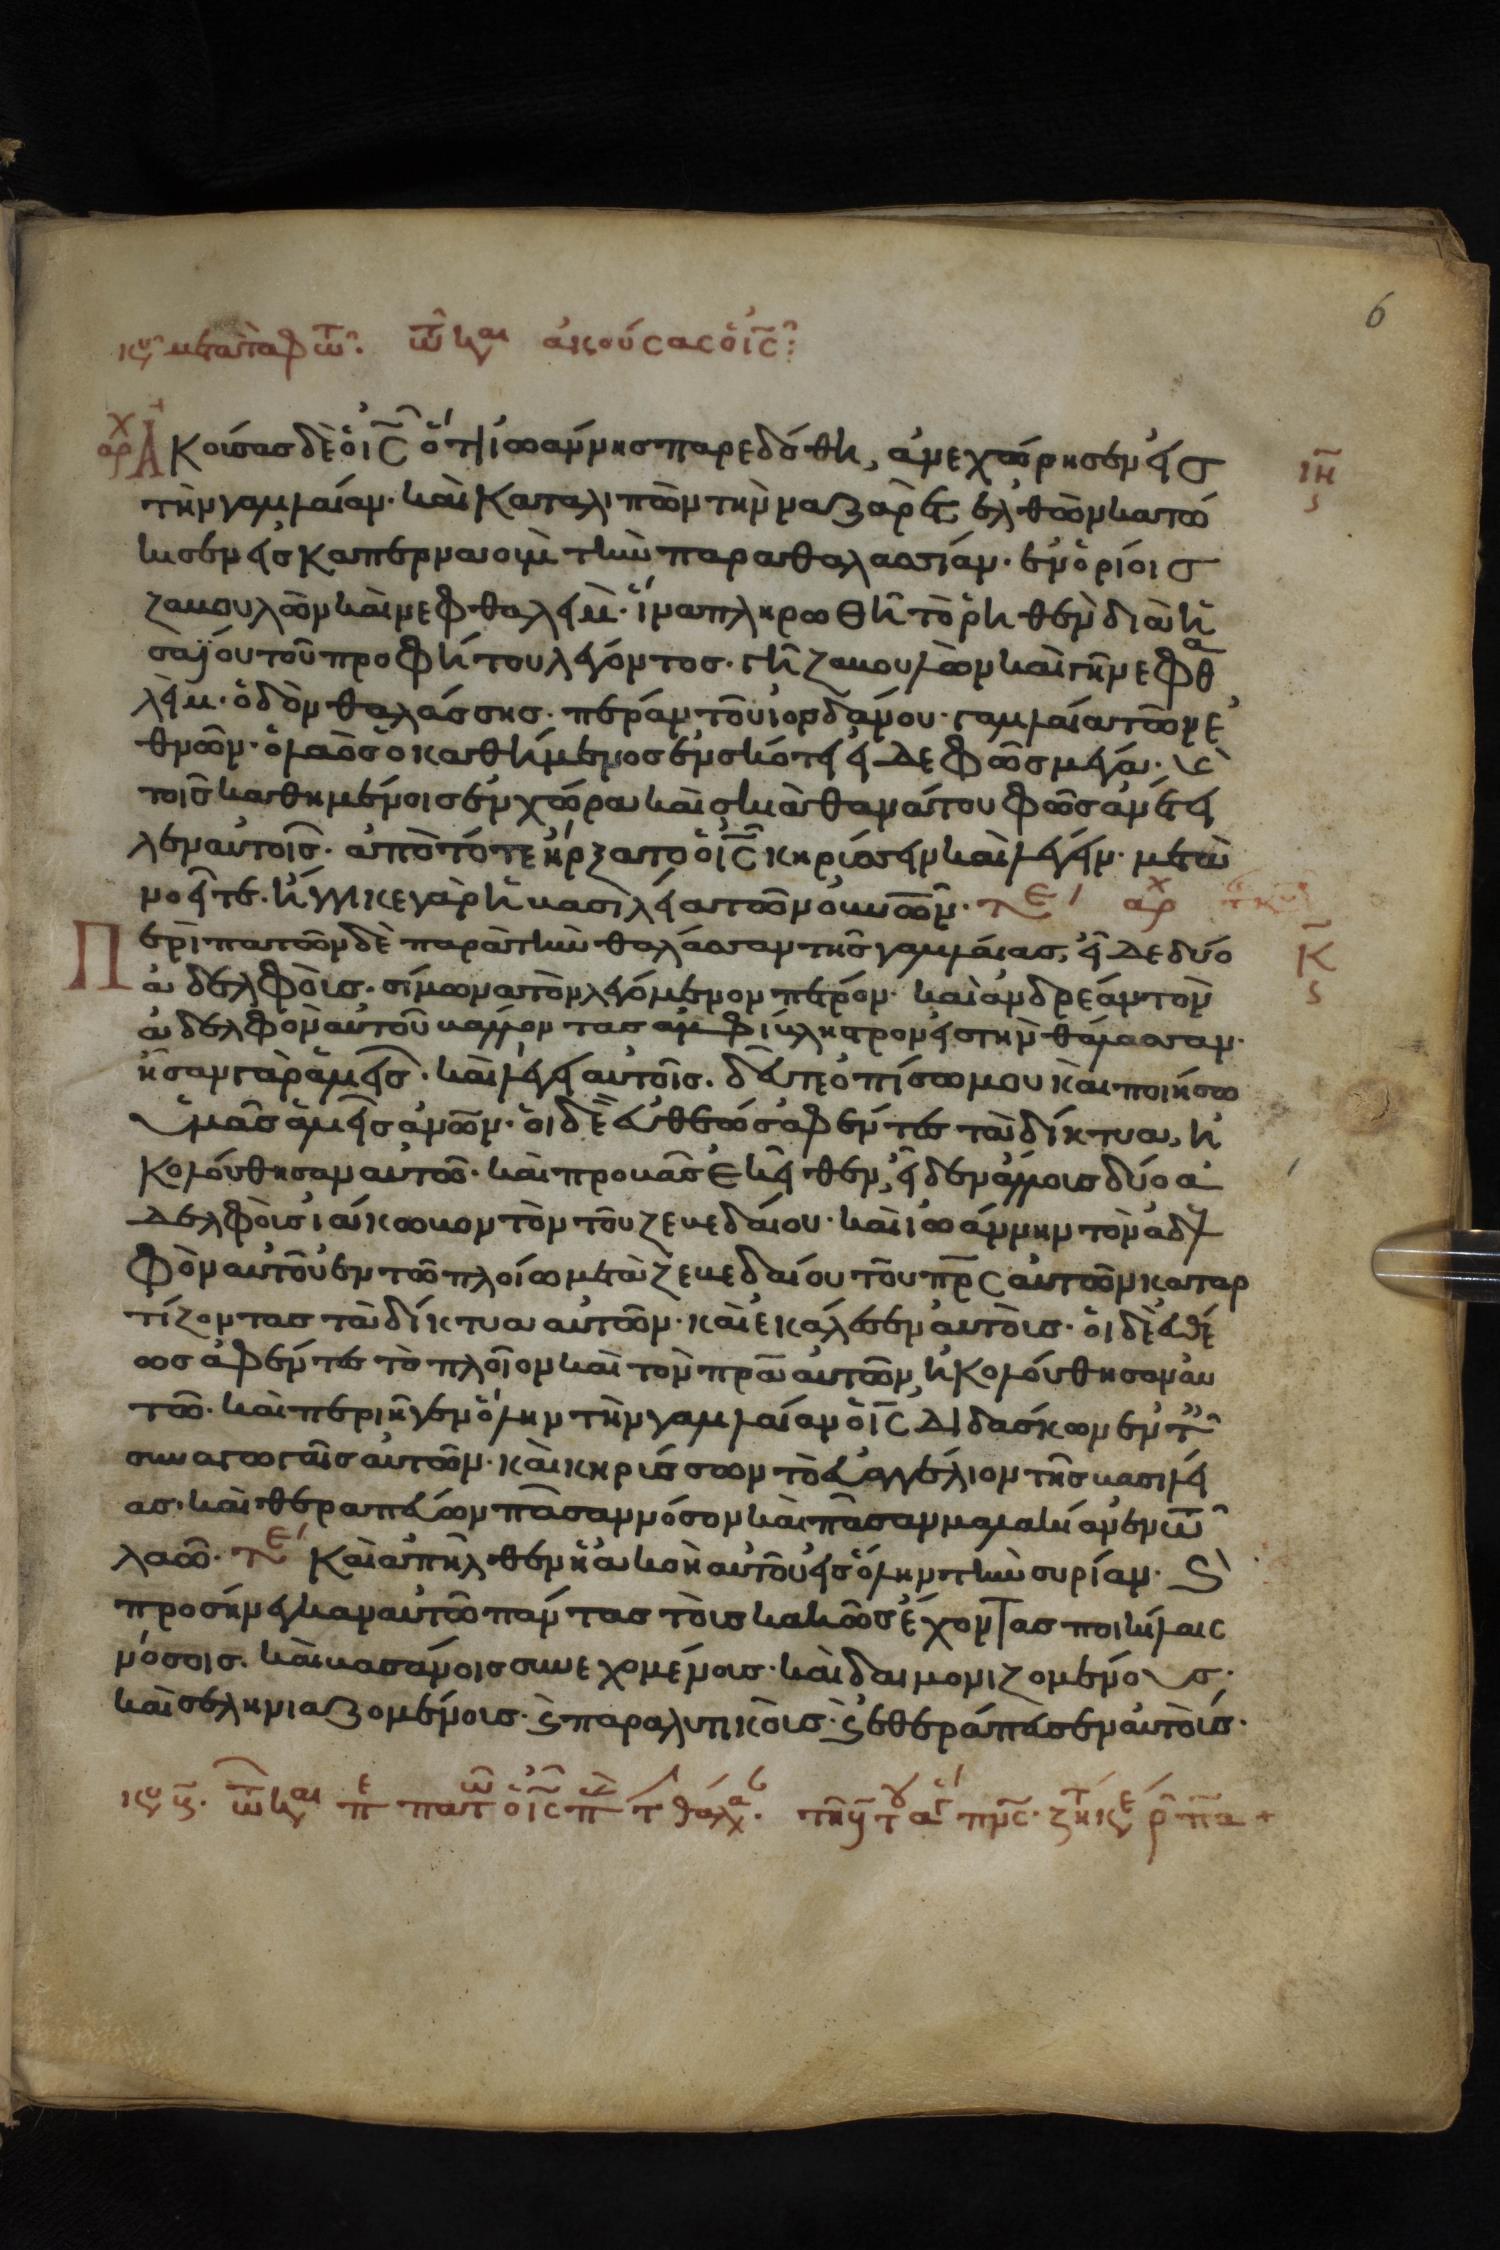 6
κυ μετὰ τὰ φωτ. τω και ἀκούσας ὁ ις:
αρχ Ἀκούσας δὲ ὁ ις ὅτι ἰωάννης παρεδόθη, ἀνεχώρησεν εἰς
τὴν γαλιλαίαν. καὶ καταλιπὼν τὴν ναζαρὲτ ἐλθὼν κατώ
κισεν εἰς καπερναοὺμ τὴν παραθαλασσίαν. ἐν ὁρίοις
ζαβουλὼν καὶ νεφθαλεὶμ. ἵνα πληρωθῆ τὸ ῥηθὲν διὰ ἡ
σαΐου τοῦ προφήτου λέγοντος. γῆ ζαβουλὼν καὶ γῆ νεφθα
λεὶμ. ὁδὸν θαλάσσης. πέραν τοῦ ἰορδάνου. γαλιλαία τῶν ἐ
θνῶν. ὁ λαὸς ὁ καθήμενος ἐν σκότει εἶδε φῶς μέγα. καὶ
τοῖς καθημένοις ἐν χώρα καὶ σκιὰ θανάτου φῶς ἀνέτει
λεν αὐτοῖς. ἀπὸ τότε ἤρξατο ὁ ις κηρύσσειν καὶ λέγειν. μετα
νοεῖτε. ἤγγικε γὰρ ἡ βασιλεία τῶν οὐνῶν. τε αρχ
Περιπατῶν δὲ παρὰ τὴν θάλασσαν τῆς γαλιλαίας, εἶδε δύο
ἀδελφοὺς. σίμωνα τὸν λεγόμενον πέτρον. καὶ ἀνδρέαν τὸν
ἀδελφὸν αὐτοῦ βάλλοντας ἀμφίβληστρον εἰς τὴν θάλασσαν.
ἦσαν γὰρ ἁλιεῖς. καὶ λέγει αὐτοῖς. δεῦτε ὀπίσω μου καὶ ποιήσω
ὑμᾶς ἁλιεῖς ἀνῶν. οἱ δὲ εὐθέως ἀφέντες τὰ δίκτυα, ἠ
κολούθησαν αὐτῶ. καὶ προβὰς ἐκεῖθεν, εἶδεν ἄλλους δύο ἀ
δελφοὺς ἰάκωβον τὸν τοῦ ζεβεδαίου. καὶ ἰωάννην τὸν ἀδελ
φὸν αὐτοῦ ἐν τῶ πλοίω μετὰ ζεβεδαίου τοῦ πρς αὐτῶν καταρ
τίζοντας τὰ δίκτυα αὐτῶν. καὶ ἐκάλεσεν αὐτοὺς. οἱ δὲ εὐθέ
ως ἀφέντες τὸ πλοῖον καὶ τὸν πρα αὐτῶν, ἠκολούθησαν αὐ
τῶ. καὶ περιῆγεν ὅλην τὴν γαλιλαίαν ὁ ις διδάσκων ἐν τ
συναγωγαῖς αὐτῶν. καὶ κηρύσσων τὸ εὐαγγέλιον τῆς βασιλεί
ας. καὶ θεραπεύων πᾶσαν νόσον καὶ πᾶσαν μαλακίαν ἐν τῶ
λαῶ. τε καὶ ἀπῆλθεν ἡ ἀκοὴ αὐτοῦ εἰς ὅλην τὴν συρίαν. καὶ
προσήνεγκαν αὐτῶ πάντας τοὺς κακῶς ἔχοντας ποικίλαις
νόσοις. καὶ βασάνοις συνεχομένους. καὶ δαιμονιζομένους.
καὶ σεληνιαζομένους. καὶ παραλυτικοὺς. καὶ ἐθεράπευσεν αὐτοὺς.
ιη
κ